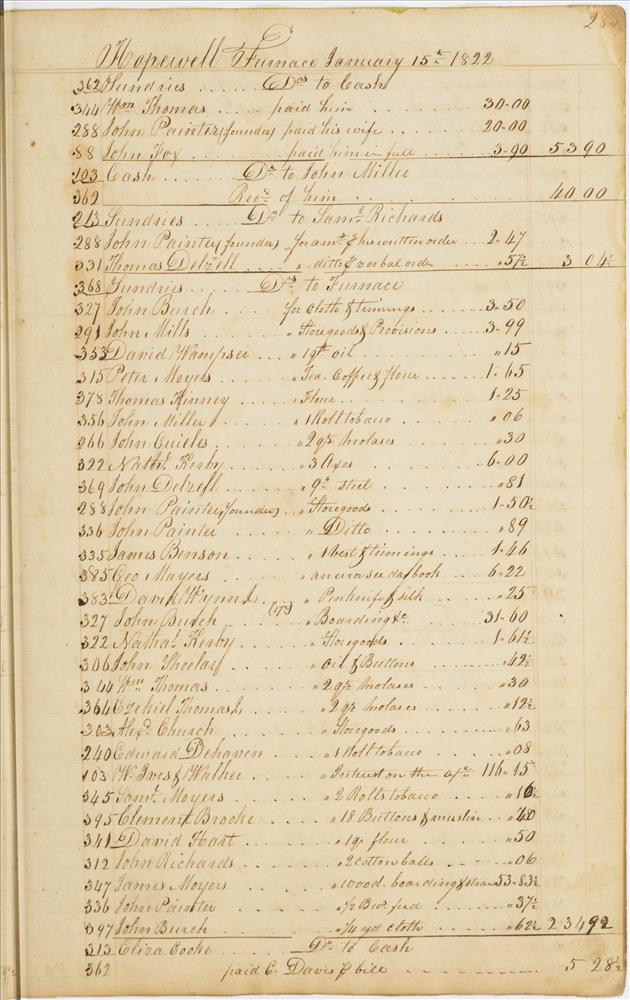 28
Hopewell Furnace January 15th 1822
362 Sundries ..... Drs to Cash
344 Wm Thomas ..... paid him ..... 30-00
288 John Painter (founder) paid his wife ..... 20-00
88 John Fox ..... paid him in full ..... 3-90 53 90
103 Cash ..... Dr to John Miller
362 Recd of him ..... 40 00
213 Sundries ..... Drs to Saml Richards
288 John Painter (founder) for amt of his written order ... 2-47
331 Thomas Delzell .... " ditto of verbal order .... " 57½ 3 04½
368 Sundries ..... Drs to Furnace
327 John Burch ..... for cloth & trimings .... 3-50
291 John Mills ..... " Storegoods & Provisions .... 3-99
353 David Wampser ... " 1 qt oil ..... " 15
315 Peter Moyers ..... " Tea. Coffee & flour .... 1-65
378 Thomas Kinney .... " Flour ..... 1-25
356 John Miller ..... " 1 Roll tobacco .... " 06
266 John Quieles ..... " 2 qts Molases .... " 30
322 Nathl Kerby ..... " 3 Axes ..... 6-00
369 John Delzell ..... " 9 lb steel ..... " 81
288 John Painter (founder) .. " Storegoods ..... 1-50½
336 John Painter ..... " Ditto ..... " 89
335 James Benson ..... " 1 vest & trimings .... 1-46
385 Geo Mayers ..... 6-22
383 David Wynn ..... " Penknife & silk .... " 25
327 John Burch ..... " Boarding &c. ... 31-60
322 Nathal Kerby ..... " Storegoods ..... 1-61½
306 John Sheelar ..... " Oil & Buttons .... " 42½
344 Wm Thomas ..... " 2 qts Molases ..... " 30
364 Ezekiel Thomas ..... " 2 qts Molases .... " 12½
303 Alexd Church ..... " Storegoods ..... " 63
240 Edward Dehaven .... " 1 Roll tobacco .... " 08
103 W. Ives & Walker ... " Interest on the a/c. 116-15
345 Saml Moyers .... " 2 Rolls tobacco .... " 16½
395 Clement Brooke .... " 18 Buttons & muslin .. " 40
341 David Hart ..... " 1 qr flour ..... " 50
312 John Richards ..... " 2 cotton balls .... " 06
347 James Moyers .... " wood. boarding & 53-83½
336 John Painter .... " ½ Bus. feed .... " 37½
397 John Burch ..... " ¼ yd cloth .... " 62½ 234 92
313 Eliza Cooke ..... Dr to Cash
362 paid C. Davis of bill ..... 5 28½